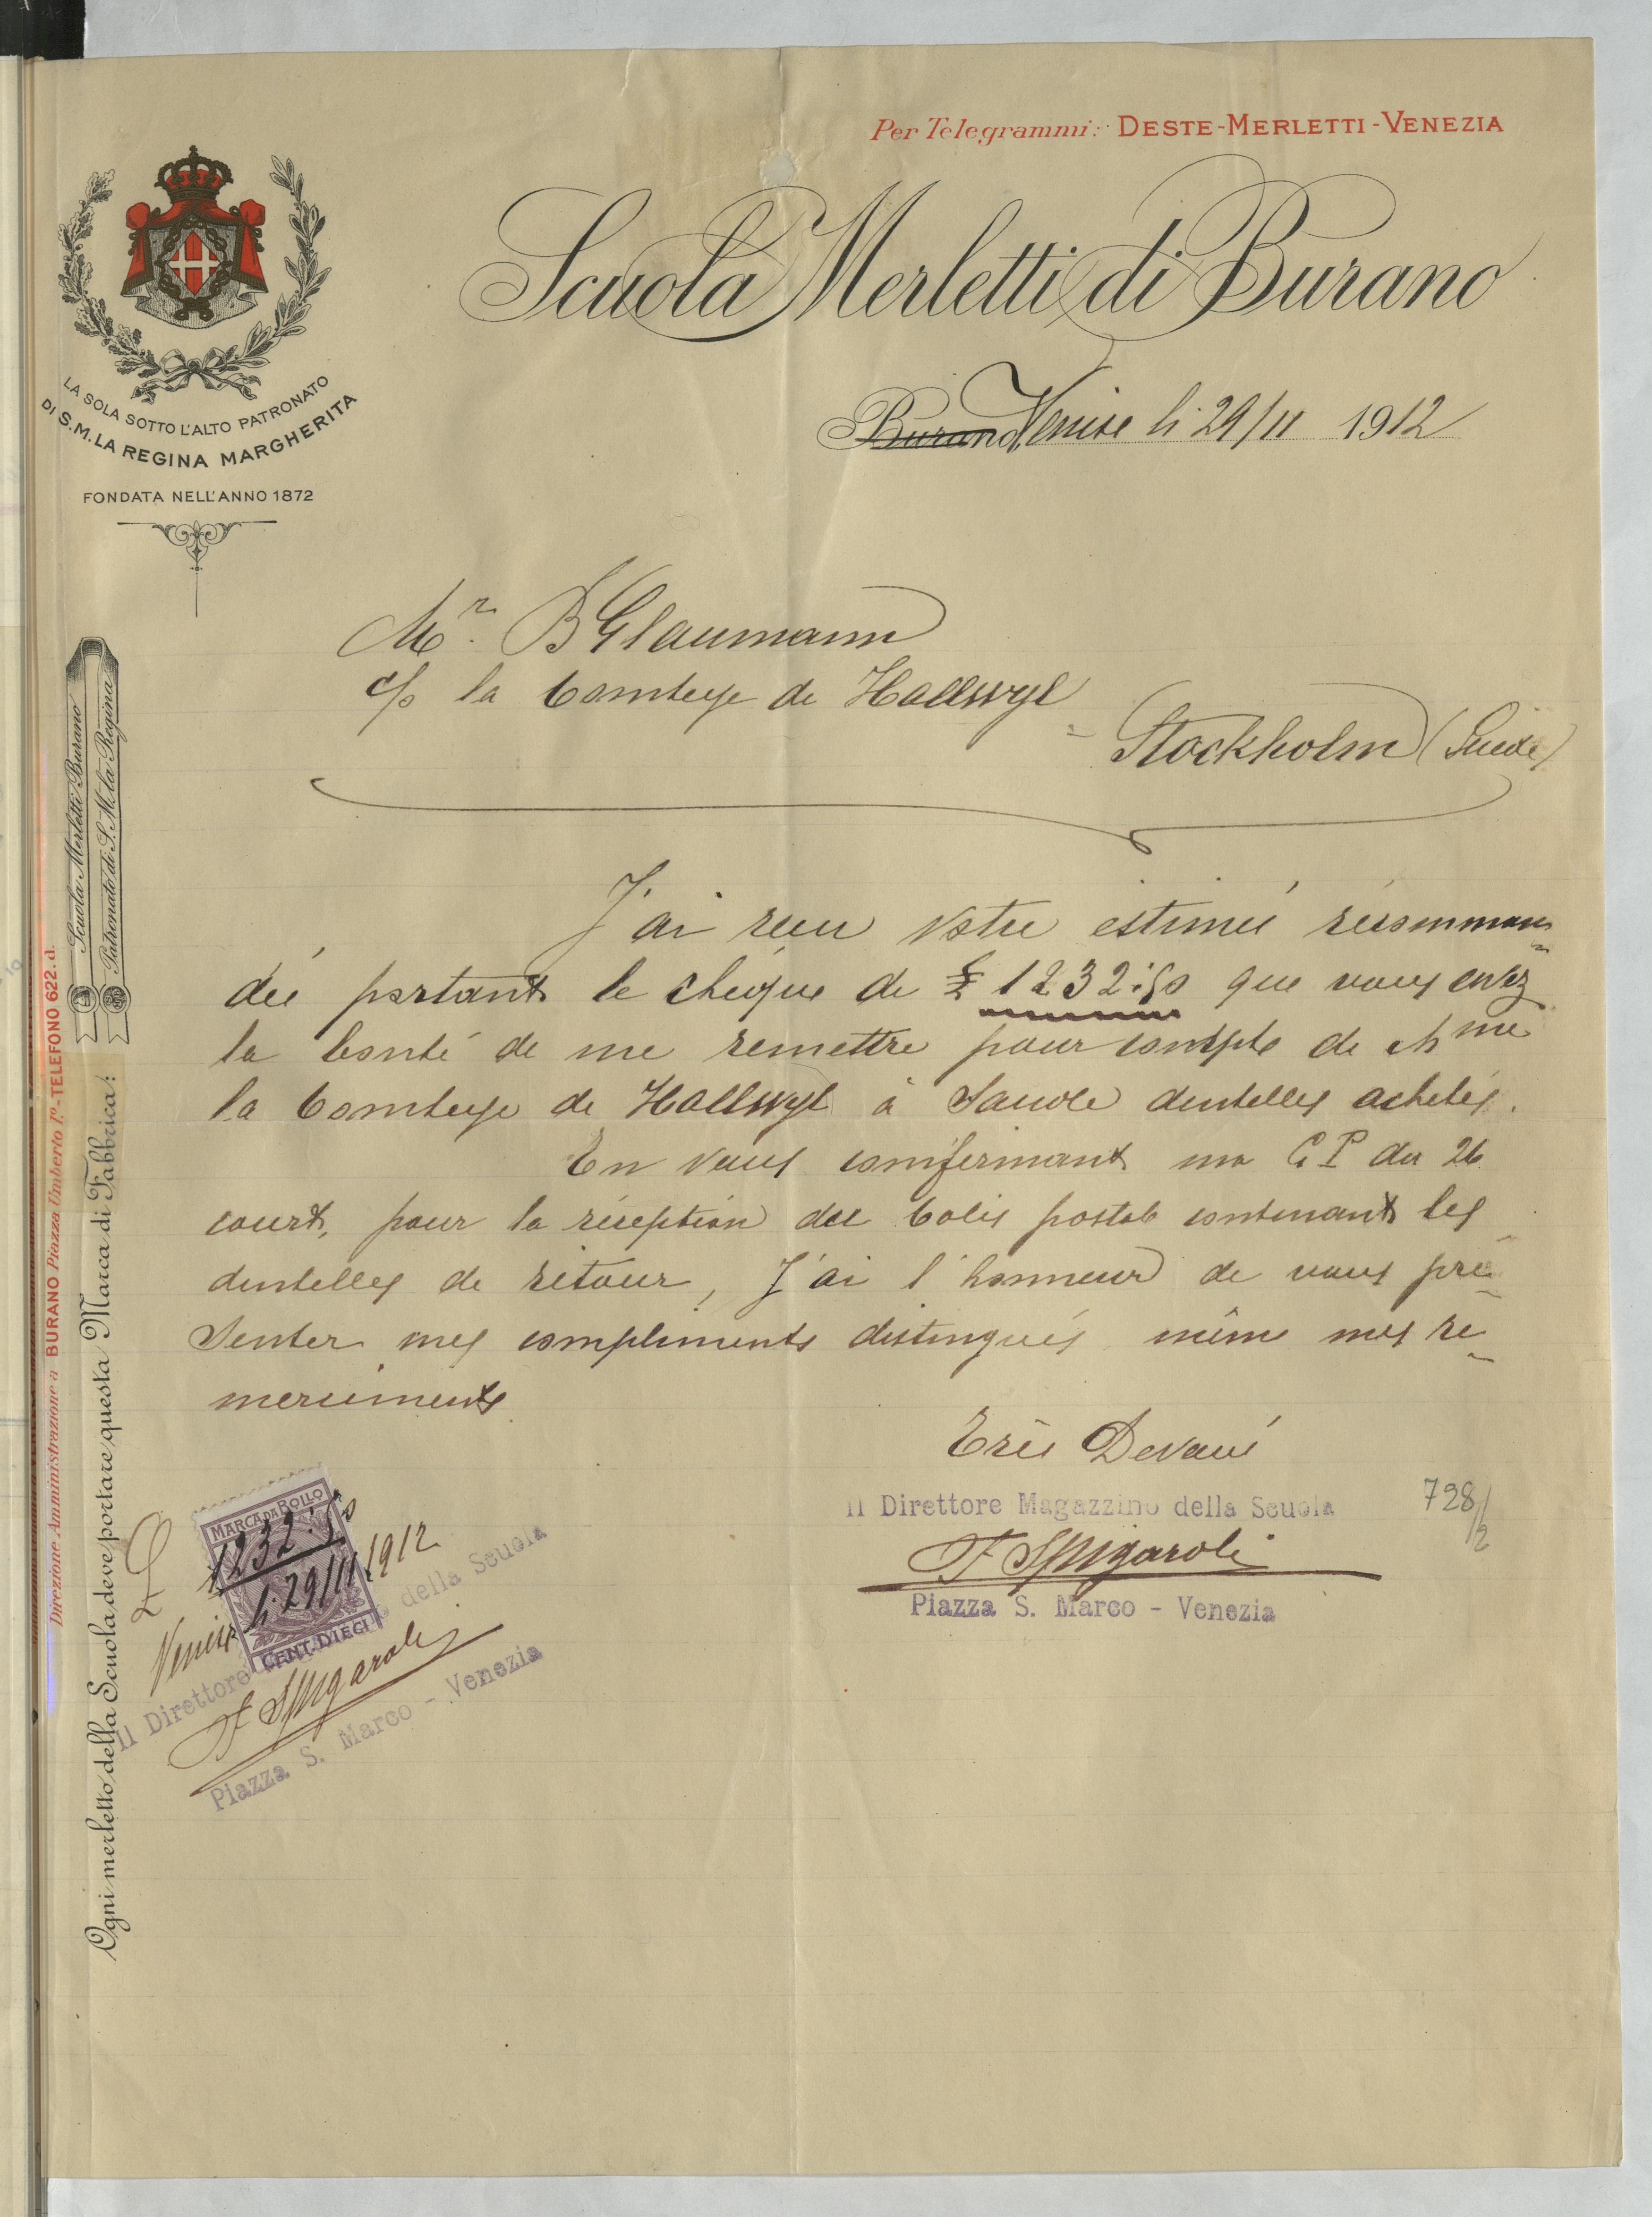 Per Telegrammi: DESTE-MERLETTI-VENEZIA
Scuola Merletti di Burano
LA SOLA SOTTO L'ALTO PATRONATO
DI S.M. LA REGINA MARGHERITA
FONDATA NELL'ANNO 1872
Burano, Venise li 29/11 1912
Mr. B Glaumann
c/o la Comtesse de Hallwyl
Stockholm (Suede)
J'ai reçu votre estimée récomman
dée portant le chéque de £ 1232:50 que vous avez
la bonté de me remettre pour compte de Mme
la Comtesse de Hallwyl à Saude dentelles achetés.
En vous comfermant ma C P du 26
court, pour la réception du Colis postal contenant les
dentelles de retour, J'ai l'honneur de vous pré
senter mes compliments distingués même mes re
merciments
Très Devoué
Il Direttore Magazzino della Scuola
F Spigaroli
Piazza S. Marco - Venezia
728/2
MARCA DA BOLLO
£ 1232.50
Venise li 29/11 1912
CENT. DIECI
Il Direttore della Scuola
F Spigaroli
Piazza S. Marco - Venezia
Scuola Merletti Burano
Patronato di S. M. la Regina
Ogni merletto della Scuola deve portare questa Marca di Fabbrica:
Direzione Amministrazione a BURANO Piazza Umberto I.º - TELEFONO 622. d.